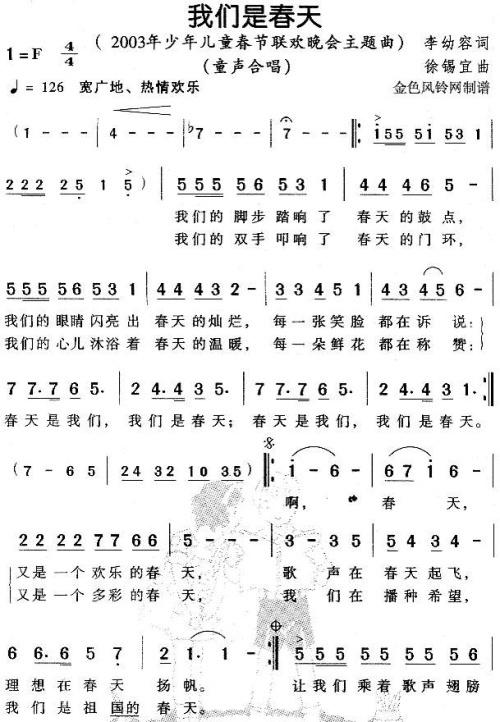 我们是春天
1=F 4/4 (2003年少年儿童春节联欢晚会主题曲) 李幼容词
(童声合唱) 徐锡宜曲
♩=126 宽广地、热情欢乐 金色风铃网制谱
(1 - - - | 4 - - - | ♭7 - - - | 7 - - - |: i55 51 531 |
222 25 1 5) | 555 56 53 1 | 44 46 5 - |
我们的 脚步 踏响 了 春天 的鼓 点,
我们的 双手 叩响 了 春天 的门 环,
555 56 531 | 44 43 2 - | 3 3 3 5 5 | 4 3 45 - |
我们的 眼睛 闪亮 出 春天 的灿 烂, 每一 张笑 脸 都在 诉 说:
我们的 心儿 沐浴 着 春天 的温 暖, 每一 朵鲜 花 都在 称 赞:
7 7. 7 65. | 2 4. 4 35. | 7 7. 7 65. | 2 4. 4 35. |
春天是我们, 我们是春天; 春天是我们, 我们是春天。
(7 - 6 5 | 24 32 10 35) :| i - 6 - | 67 i - |
啊, 春 天,
22 22 77 66 | 5 - - - | 3 - 3 5 | 5 5 5 3 |
又是 一个 欢乐 的春 天, 歌 声在 春天起飞,
又是 一个 多彩 的春 天, 我 们在 播种希望,
6 6. 6 5 7 | 2 . 1 . :| 555 55 55 56 |
理 想在 春天 扬 帆。 让我们 乘着 歌声 翅膀
我 们是 祖国的 春 天。